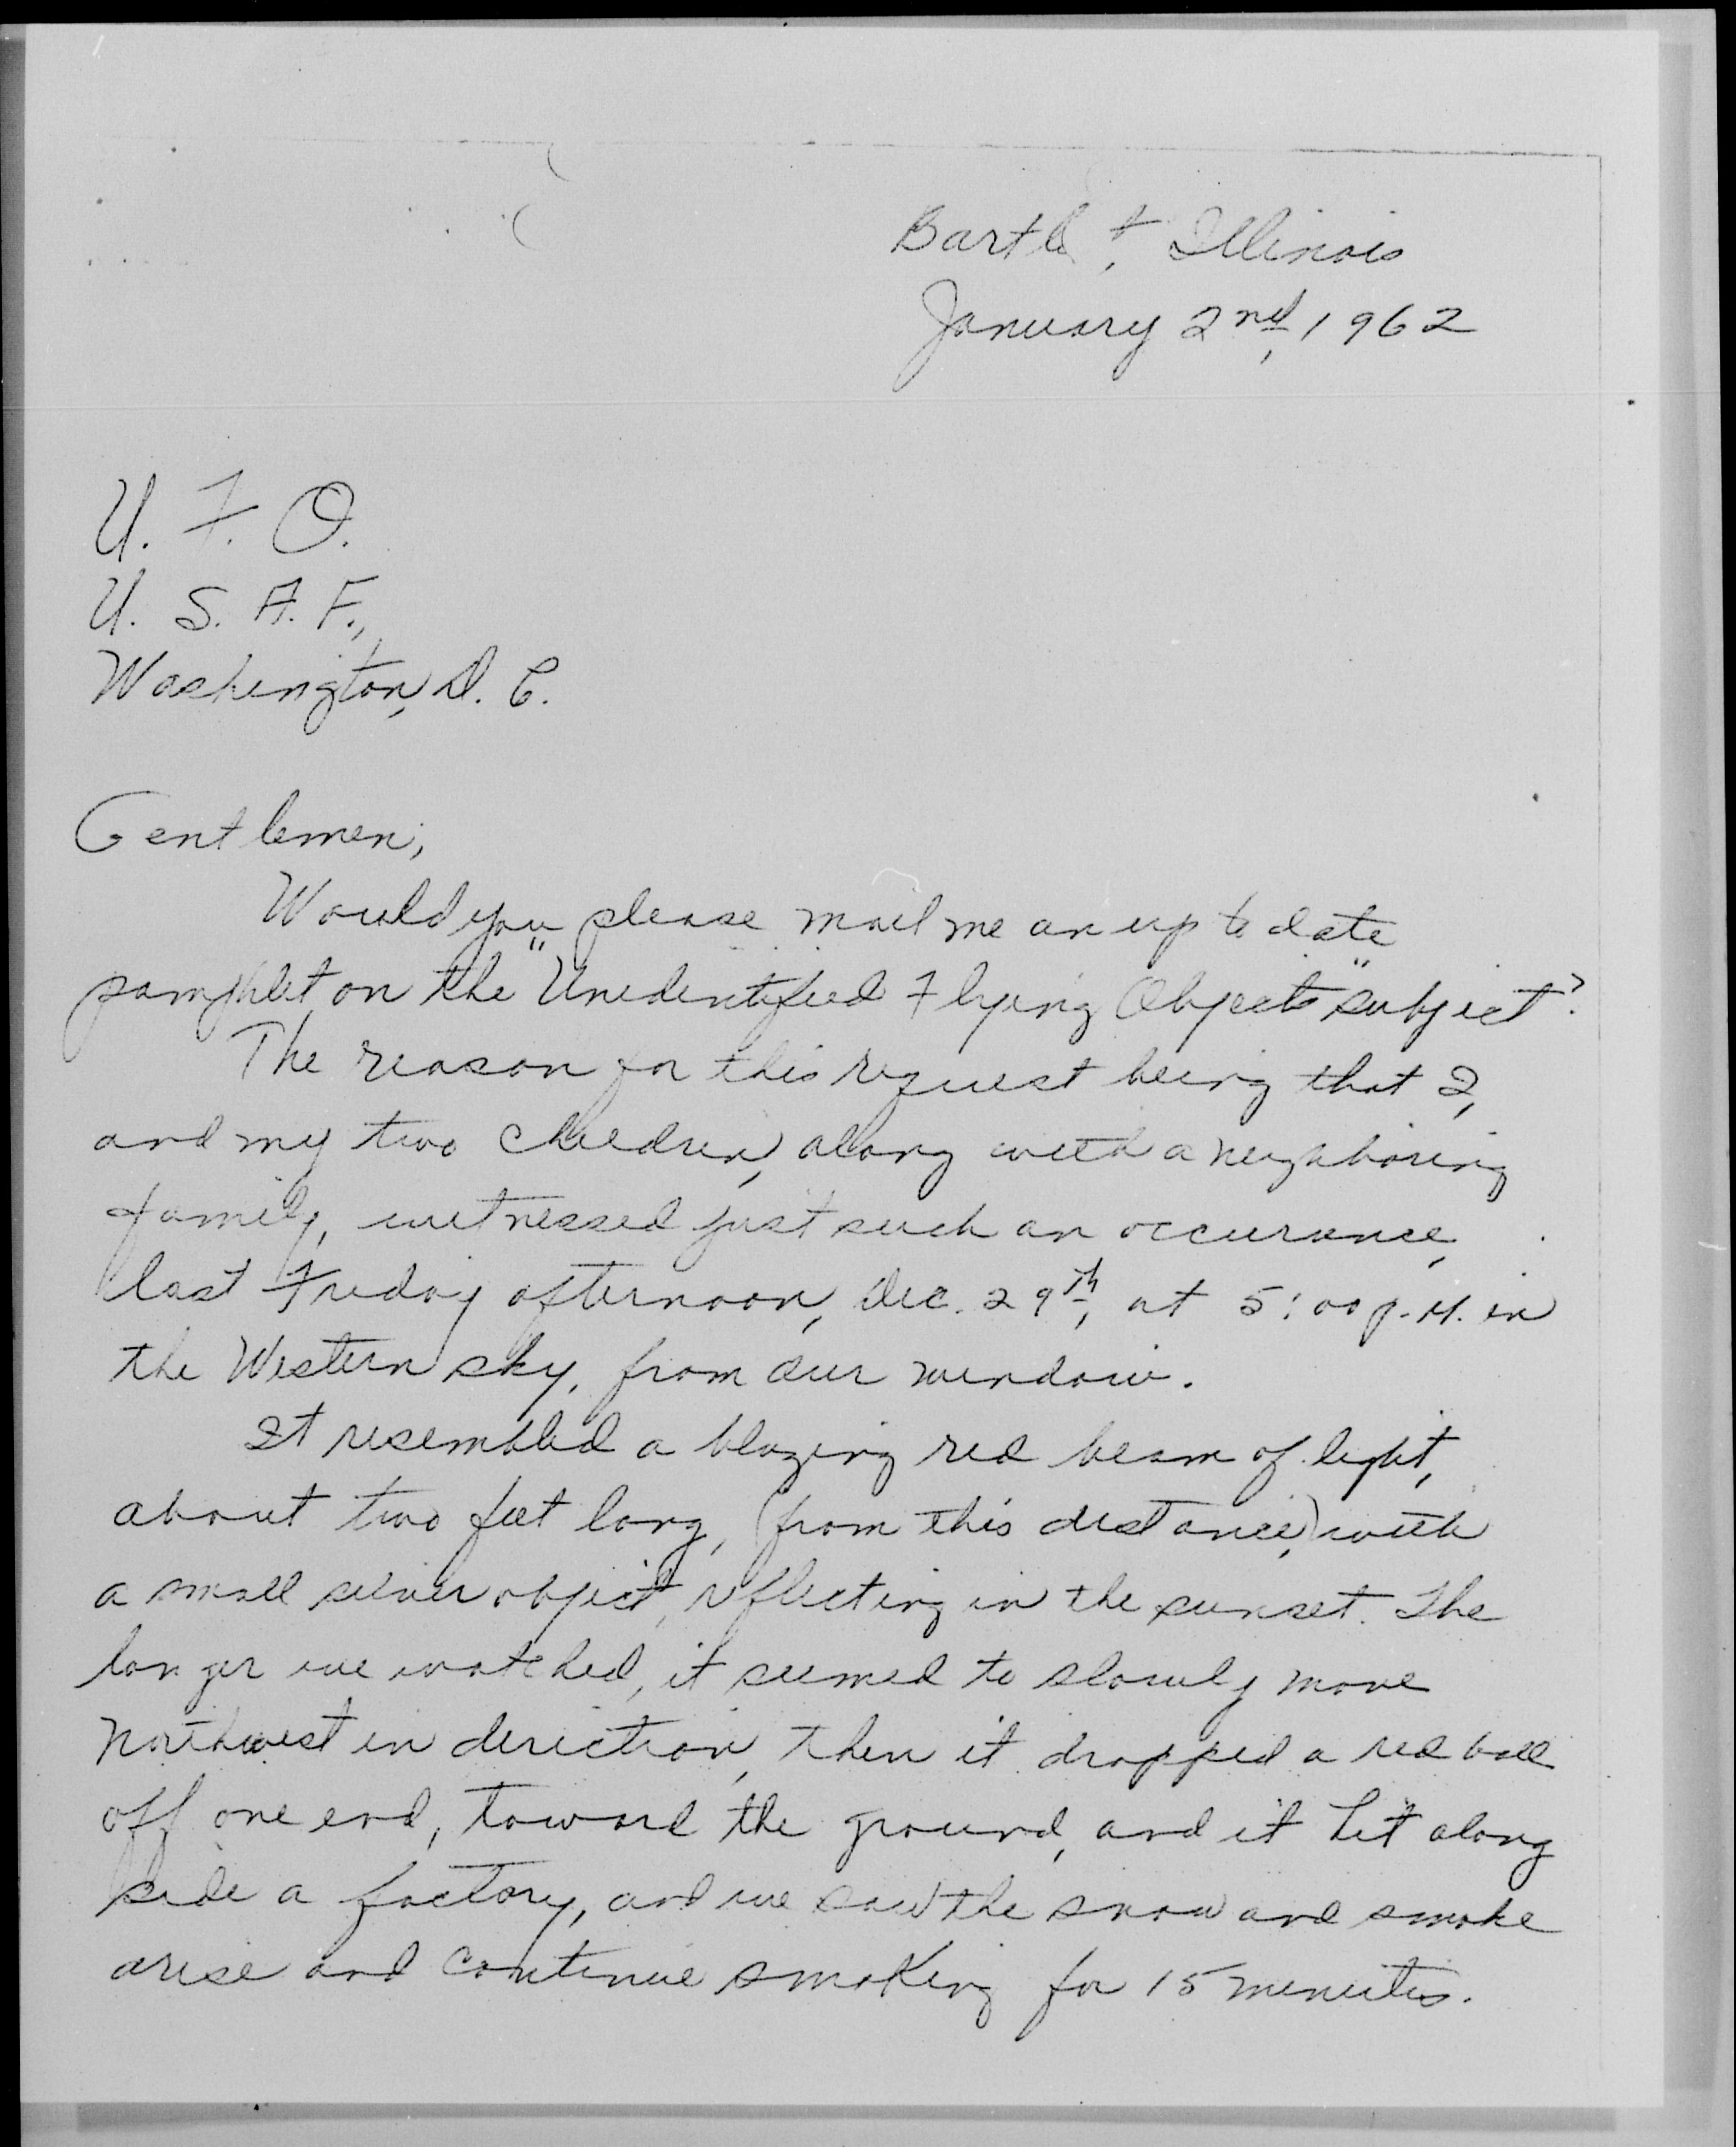 Bartlett, Illinois
January 2nd, 1962
U. F. O.
U. S. A. F.,
Washington, D. C.
Gentlemen;
Would you please mail me an up to date
pamphlet on the "Unidentified Flying Objects" subject?
The reason for this request being that I,
and my two children, along with a neighboring
family, witnessed just such an occurance,
last Friday afternoon, Dec. 29th, at 5:00 p.M. in
the Western sky, from our window.
It resembled a blazing red beam of light,
about two feet long, (from this distance,) with
a small silver object, reflecting in the sunset. The
longer we watched, it seemed to slowly move
northwest in direction, then it dropped a red ball
off one end, toward the ground, and it hit along
side a factory, and we saw the snow and smoke
arise and continue smoking for 15 minutes.